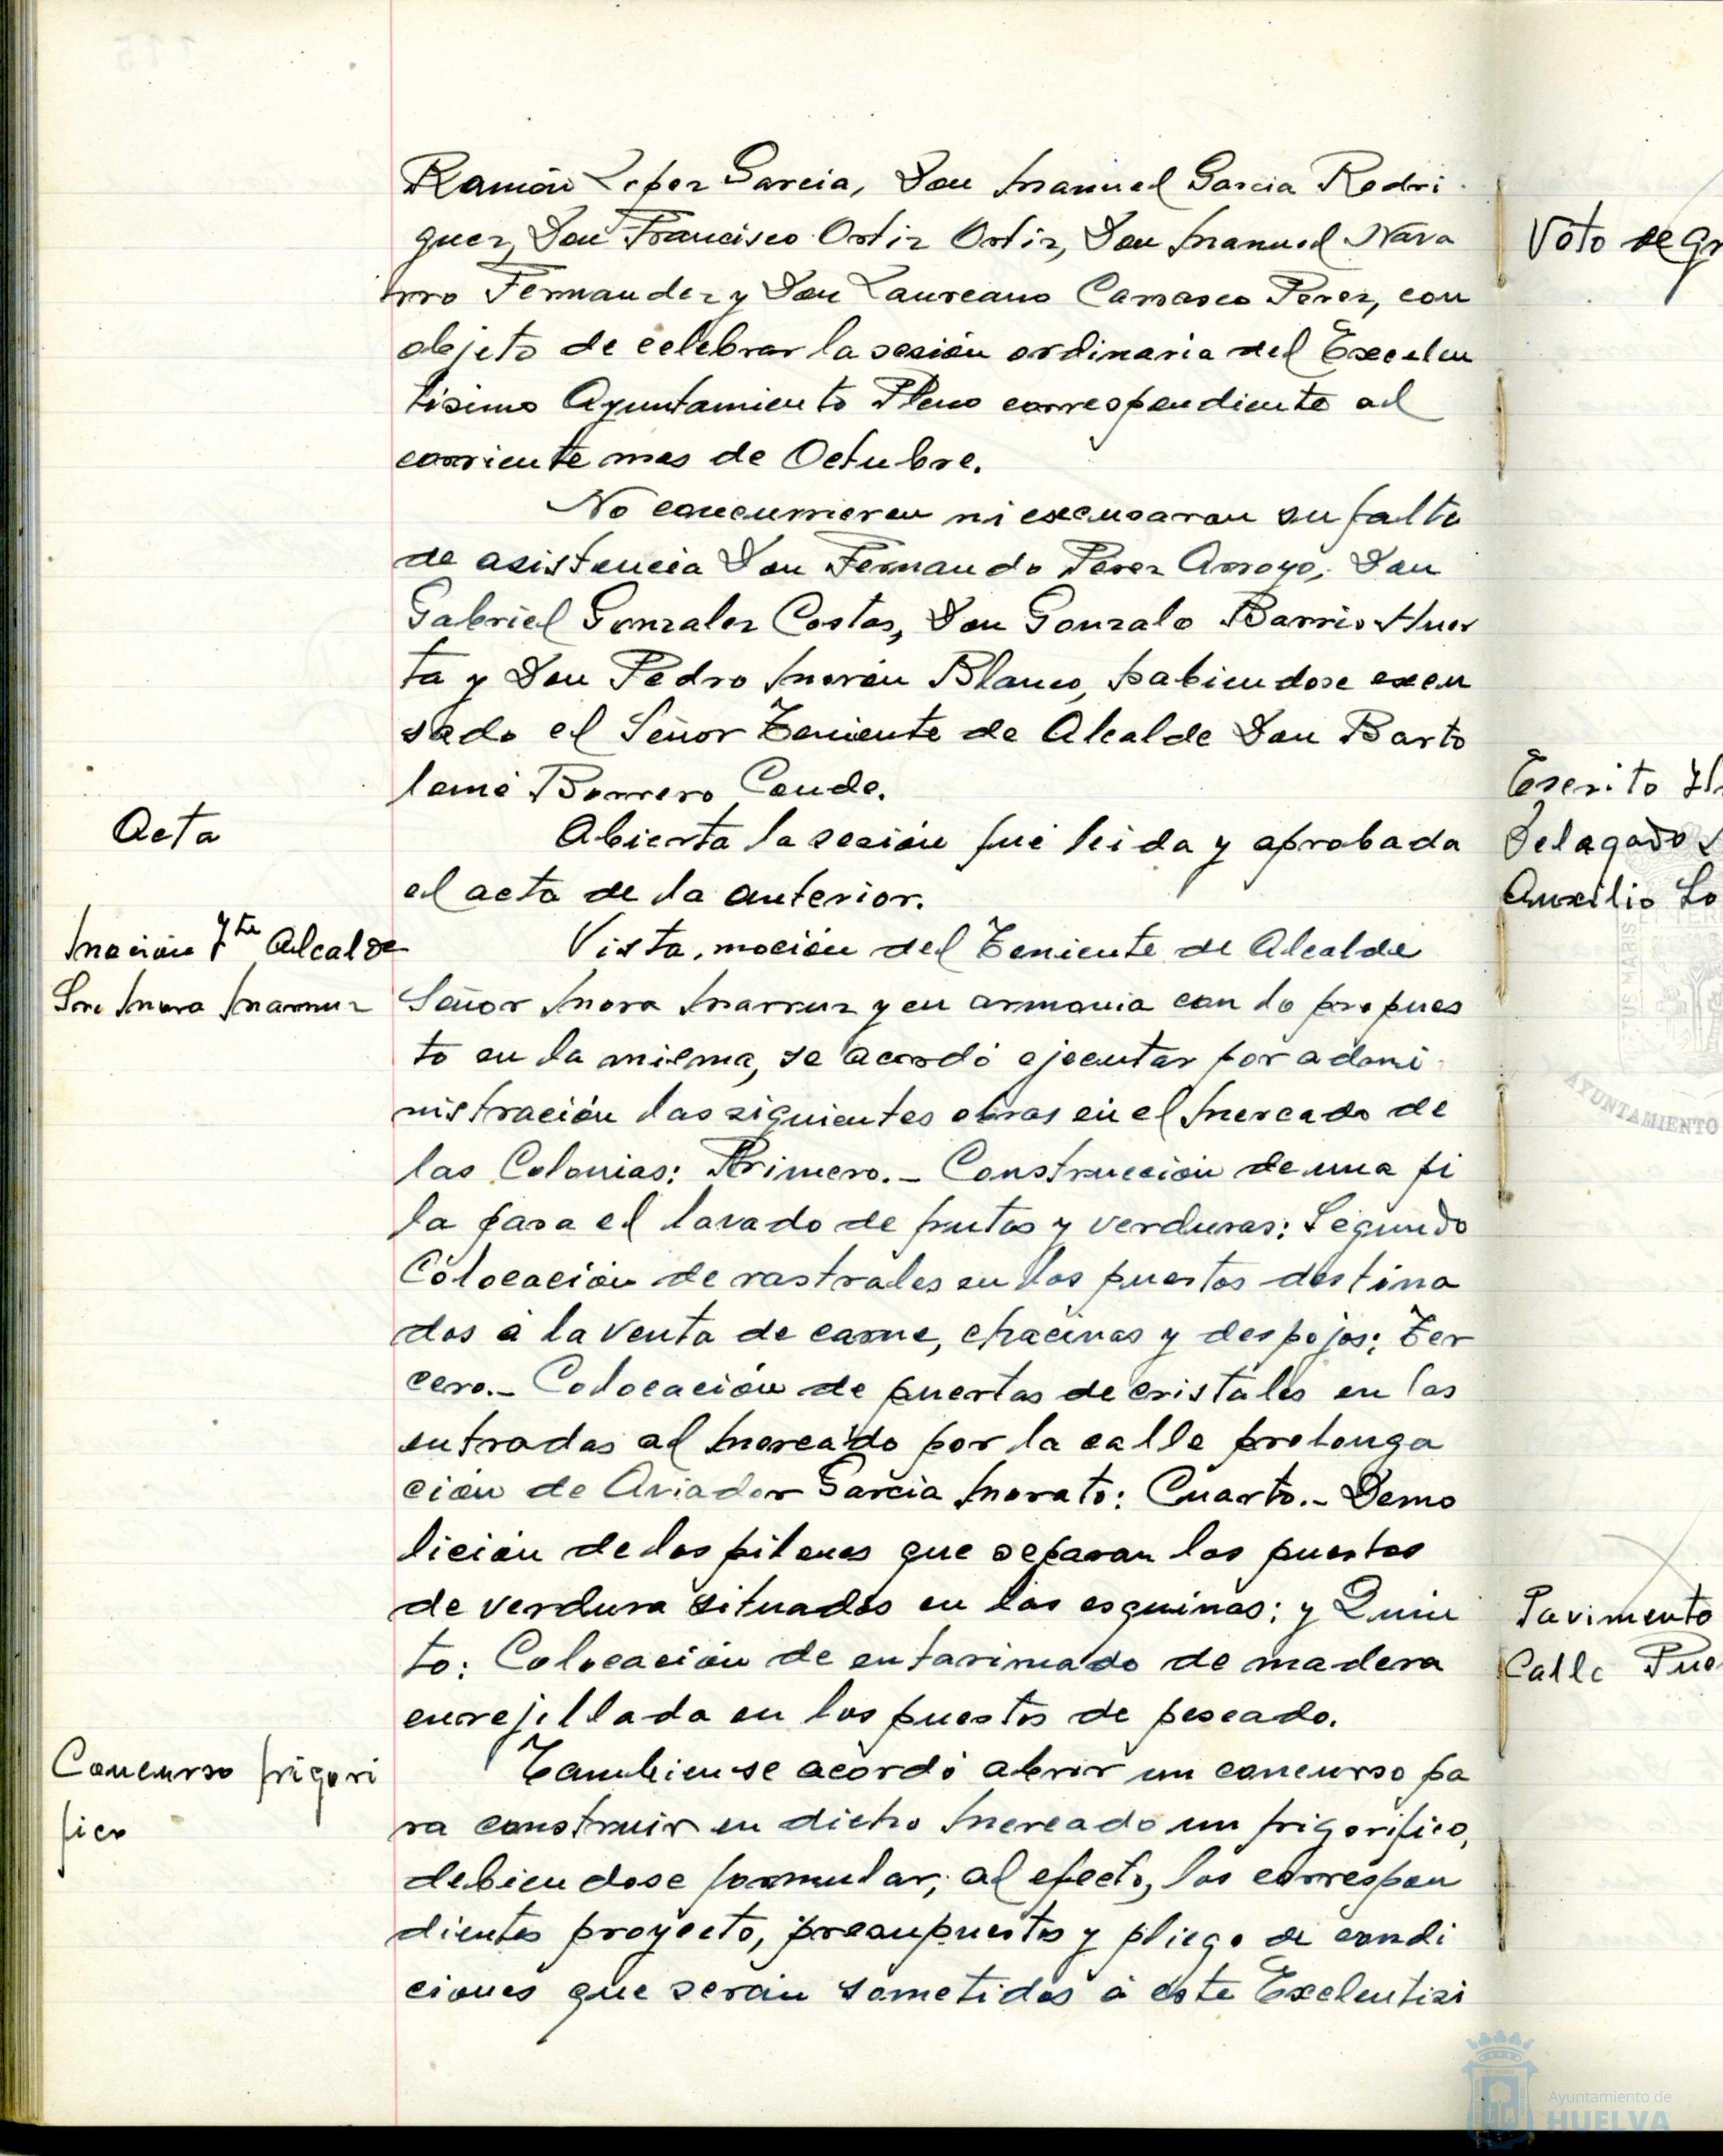 Ramón Lopez Garcia, Don Manuel Garcia Rodri
guez, Don Francisco Ortiz Ortiz, Don Manuel Nava
rro Fernandez y Don Laureano Carrasco Perez, con
objeto de celebrar la sesión ordinaria del Excelen
tisimo Ayuntamiento Pleno correspondiente al
corriente mes de Octubre.
No concurrieron ni excusaron su falta
de asistencia Don Fernando Perez Arroyo, Don
Gabriel Gonzalez Costas, Don Gonzalo Barrio Huer
ta y Don Pedro Morón Blanco, habiendose excu
sado el Señor Teniente de Alcalde Don Barto
lomé Borrero Conde.
Acta
Abierta la sesión fué leida y aprobada
el acta de la anterior.
Moción Tte Alcalde
Sr. Mora Marruz
Vista, moción del Teniente de Alcalde
Señor Mora Marruz y en armonia con lo propues
to en la misma, se acordó ejecutar por admi
nistración las siguientes obras en el Mercado de
las Colonias: Primero.- Construcción de una pi
la para el lavado de frutas y verduras; Segundo
Colocación de rastrales en los puestos destina
dos a la venta de carne, chacinas y despojos; Ter
cero.- Colocación de puertas de cristales en las
entradas al Mercado por la calle prolonga
ción de Aviador Garcia Morato: Cuarto.- Demo
lición de los pilares que separan los puestos
de verdura situados en las esquinas; y Quin
to: Colocación de entarimado de madera
enrejillada en los puestos de pescado.
Concurso frigori
fico
Tambien se acordó abrir un concurso pa
ra construir en dicho Mercado un frigorifico,
debiendose formular, al efecto, los correspon
dientes proyecto, presupuestos y pliego de condi
ciones que serán sometidos á este Exelentisi
Voto de Gr
Escrito
Delegado
Auxilio So
AYUNTAMIENTO
Pavimento
Calle Pue
Ayuntamiento de
HUELVA